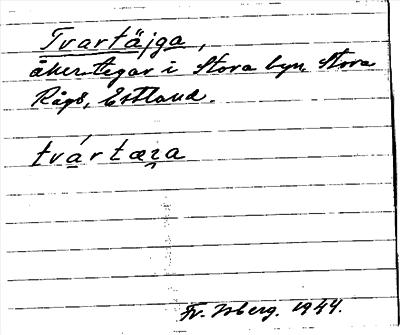 Tvartäjga,
åkertegar i Stora byn, Stora
Rågö, Estland.
tvártæʒa
Fr. Isberg. 1944.